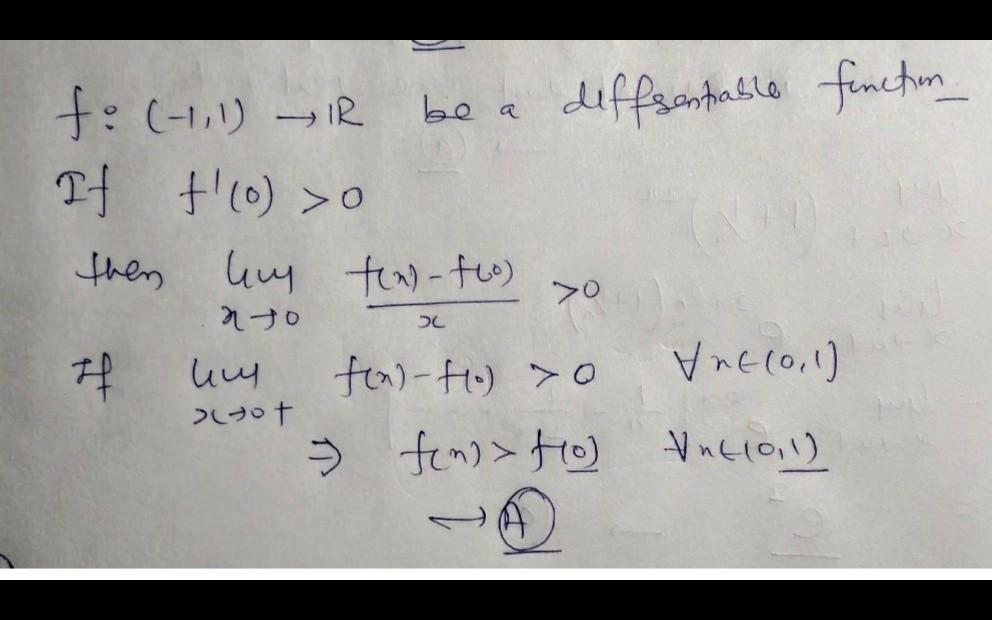 f: (-1,1) → IR be a diffrentiable function
If f'(0) > 0
then lim x→0 f(x) - f(0) / x > 0
If lim x→0+ f(x) - f(0) > 0 ∀ x ∈ (0,1)
⇒ f(x) > f(0) ∀ x ∈ (0,1)
→ A